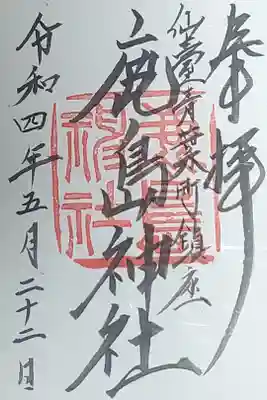 奉拝
仙臺青葉町鎮座
鹿島神社
令和四年五月二十二日